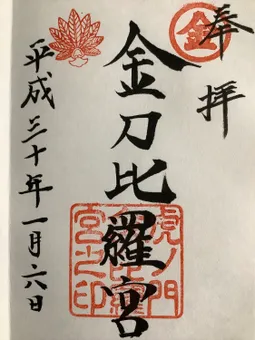 奉拝
㊎
金刀比羅宮
虎ノ門
金刀比羅
宮之印
平成三十年一月六日